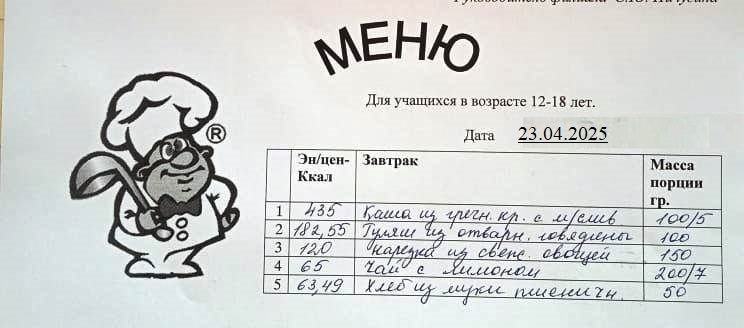 МЕНЮ
Для учащихся в возрасте 12-18 лет.
Дата 23.04.2025
Эн/цен-Ккал Завтрак Масса порции гр.
1 435 Каша из гречн. кр. с м/слив 100/5
2 182,55 Гуляш из отварн. говядины 100
3 120 нарезка из свеж. овощей 150
4 65 чай с лимоном 200/7
5 63,49 Хлеб из муки пшеничн. 50
®